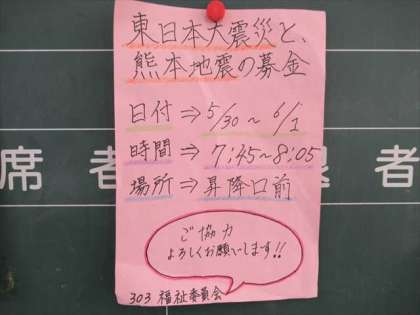 東日本大震災と、
熊本地震の募金
日付⇒5/30～6/1
時間⇒7:45～8:05
場所⇒昇降口前
ご協力
よろしくお願いします!!
303 福祉委員会
席 者 者